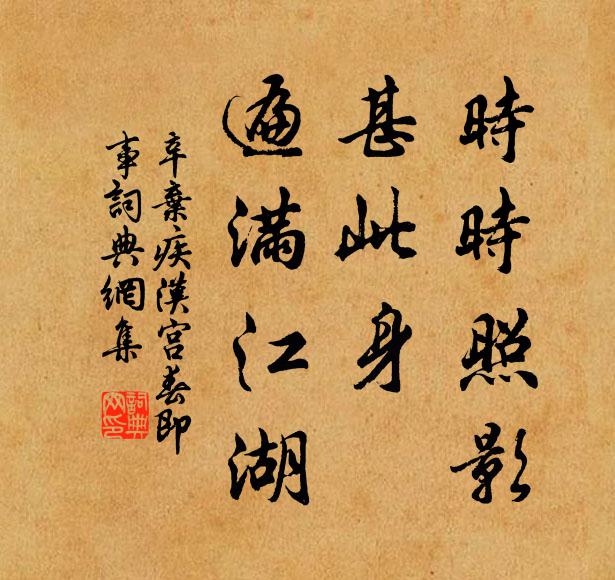 時時照影
甚此身
遍滿江湖
辛棄疾漢宮春即
事詞典網集
詞典
網印